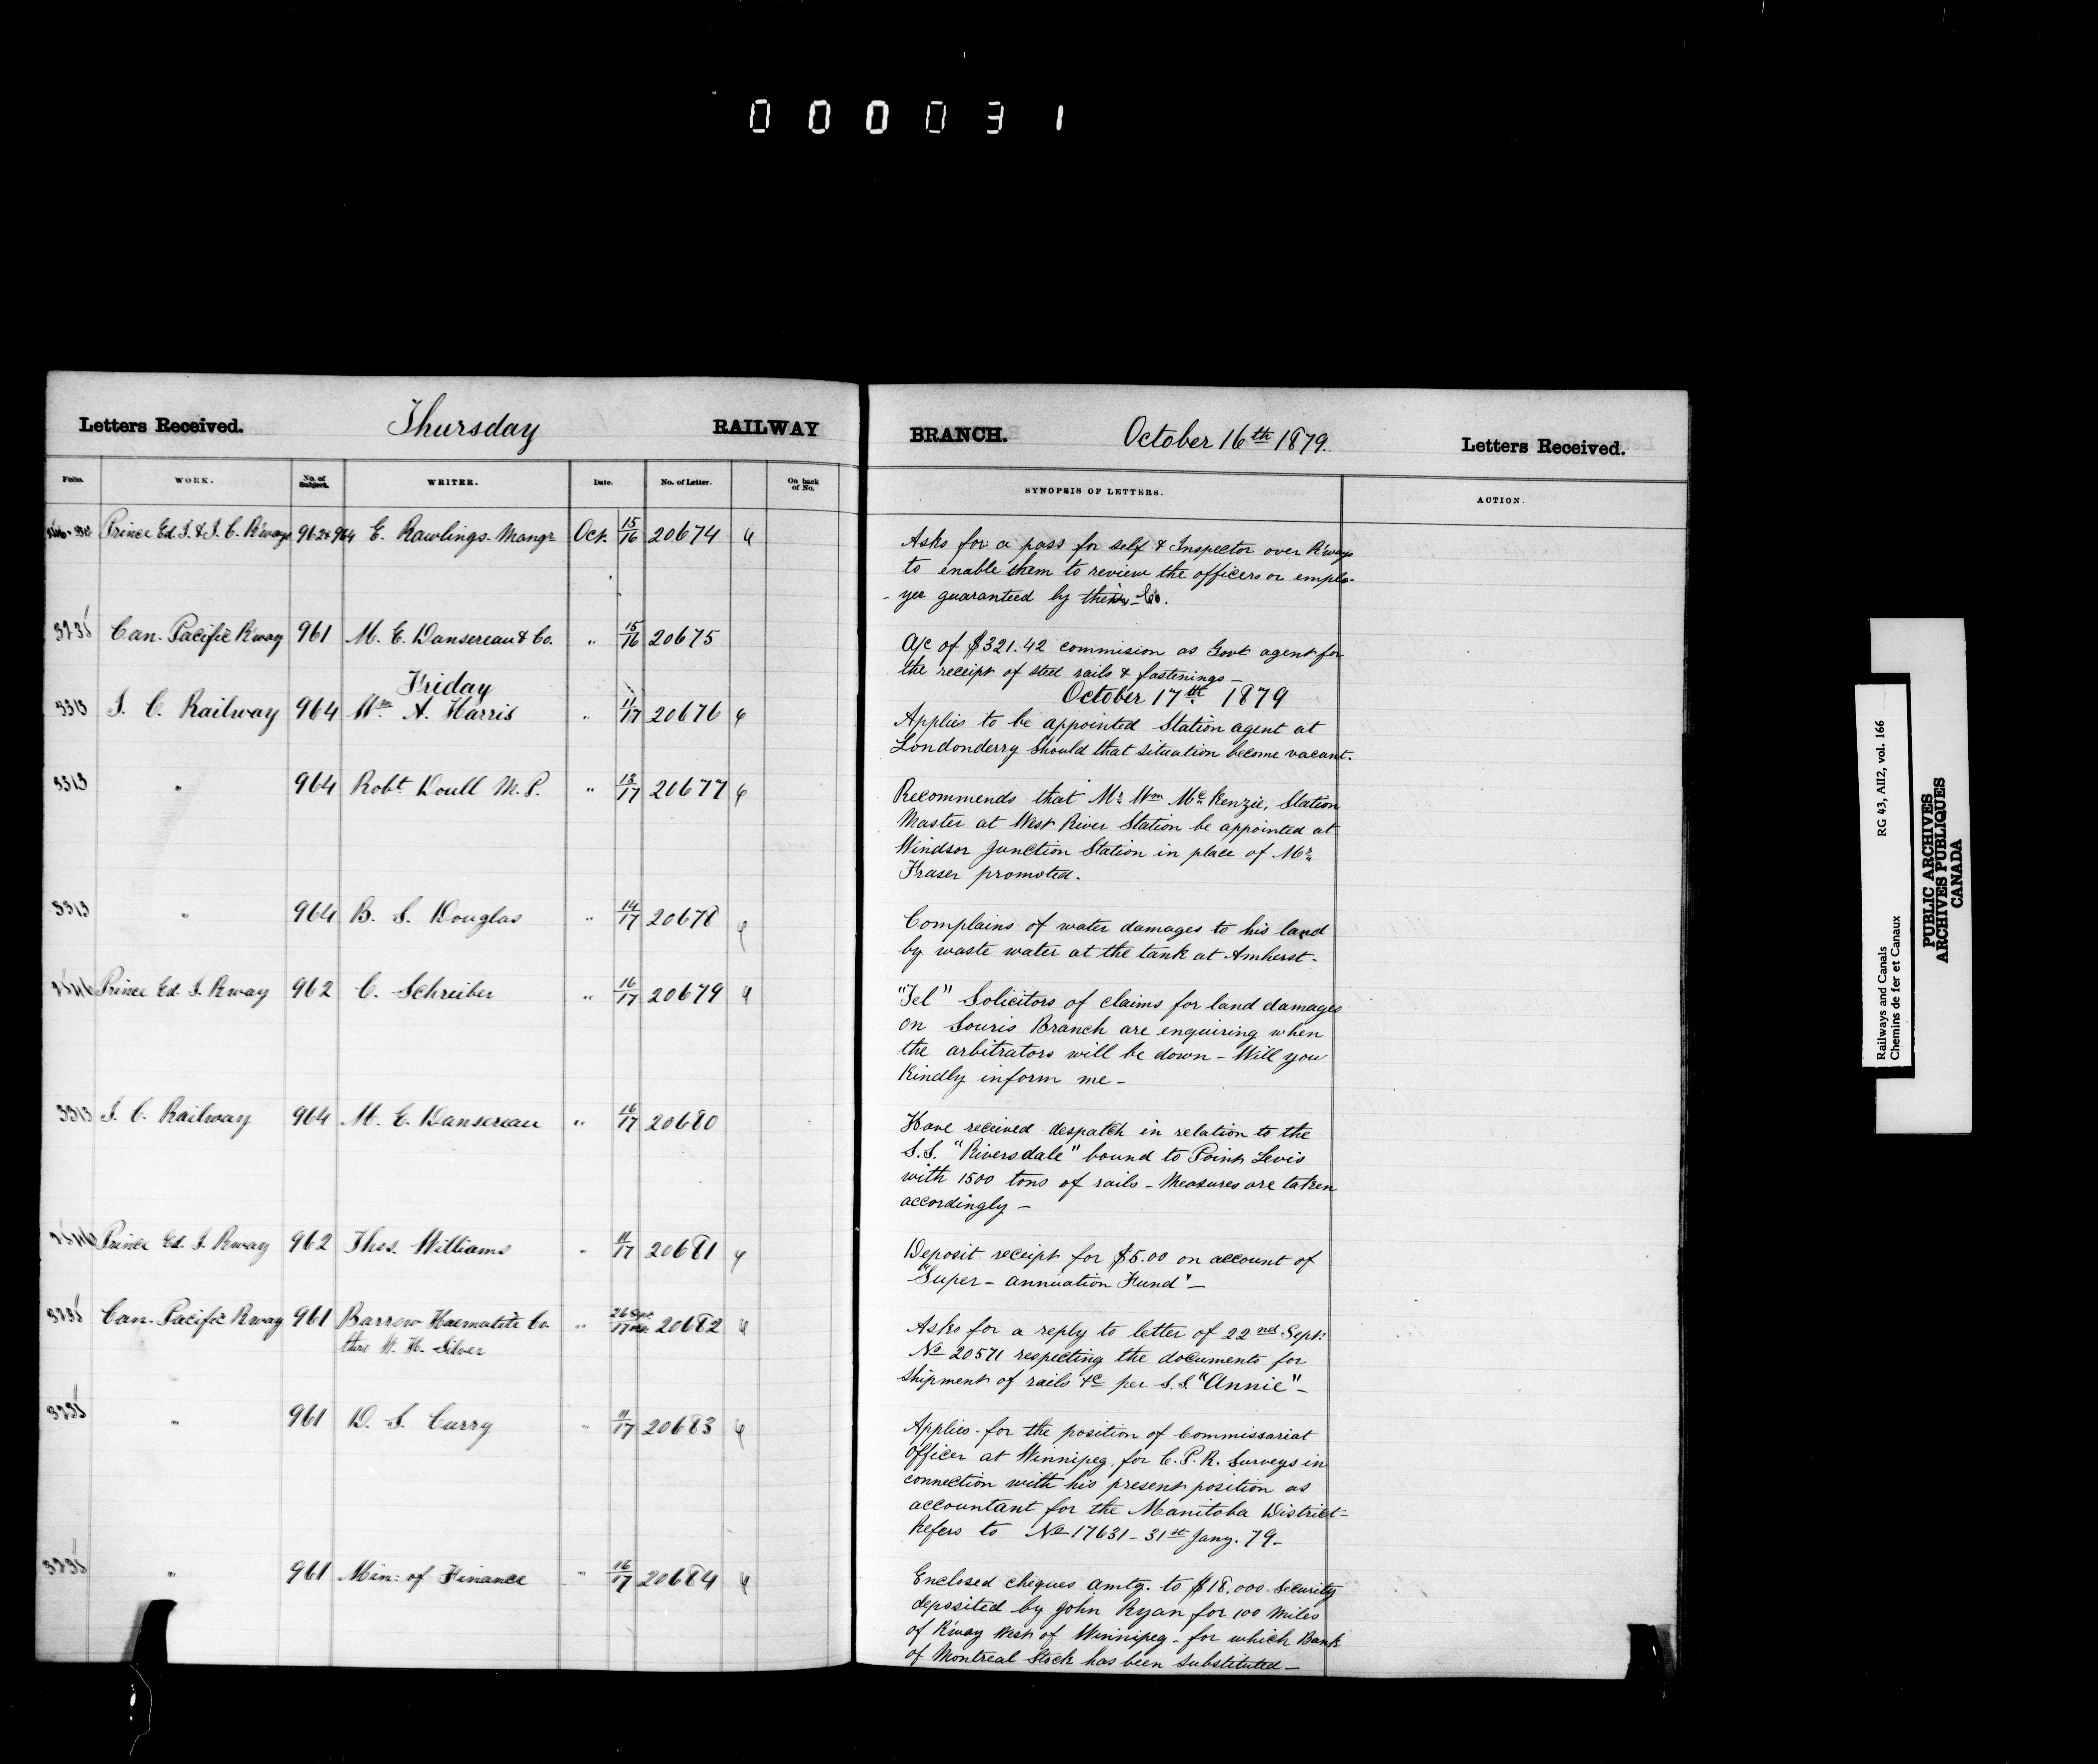 000031
Letters Received. Thursday RAILWAY
Folio. WORK. No. of Subject. WRITER. Date. No. of Letter. On back of No.
Prince Ed. I. & I. C. R'ways 962 & 964 E. Rawlings Mangr Oct. 15/16 20674
Can. Pacific R'way 961 M. E. Dansereau & Co. " 15/16 20675
Friday
3313 I. C. Railway 964 Wm A. Harris " 11/17 20676
3313 " 964 Robt Doull M.P. " 13/17 20677
3313 " 964 B. S. Douglas " 14/17 20678
Prince Ed. I. Rway 962 C. Schreiber " 16/17 20679
3313 I. C. Railway 964 M. E. Dansereau " 16/17 20680
Prince Ed. I. Rway 962 Thos. Williams " 11/17 20681
Can. Pacific Rway 961 Barrow Haematite Co. " 26 Sept. 17 Oct. 20682
thro W. H. Silver
" 961 D. S. Curry " 11/17 20683
" 961 Min: of Finance " 16/17 20684
BRANCH. October 16th 1879. Letters Received.
SYNOPSIS OF LETTERS. ACTION.
Asks for a pass for self & Inspector over R'ways
to enable them to review the officers or emplo-
-yes guaranteed by their Co.
A/c of $321.42 commision as Govt agent for
the receipt of steel rails & fastenings -
October 17th 1879
Applies to be appointed Station agent at
Londonderry should that situation become vacant.
Recommends that Mr. Wm McKenzie, Station
Master at West River Station be appointed at
Windsor Junction Station in place of Mr.
Fraser promoted.
Complains of water damages to his land
by waste water at the tank at Amherst -
"Tel" Solicitors of claims for land damages
on Souris Branch are enquiring when
the arbitrators will be down - Will you
Kindly inform me -
Have received despatch in relation to the
S.S. "Riversdale" bound to Point Levis
with 1500 tons of rails - Measures are taken
accordingly -
Deposit receipt for $5.00 on account of
"Super-annuation Fund" -
Asks for a reply to letter of 22nd Sept:
No 20571 respecting the documents for
shipment of rails &c per S.S. "Annie" -
Applies for the position of Commissariat
Officer at Winnipeg, for C.P.R. Surveys in
connection with his present position as
accountant for the Manitoba District -
Refers to No 17631 - 31st Jany. 79 -
Enclosed cheques amtg. to $18,000 security
deposited by John Ryan for 100 miles
of R'way West of Winnipeg - for which Bank
of Montreal Stock has been substituted -
Railways and Canals RG 43, AII2, vol. 166
Chemins de fer et Canaux
PUBLIC ARCHIVES
ARCHIVES PUBLIQUES
CANADA